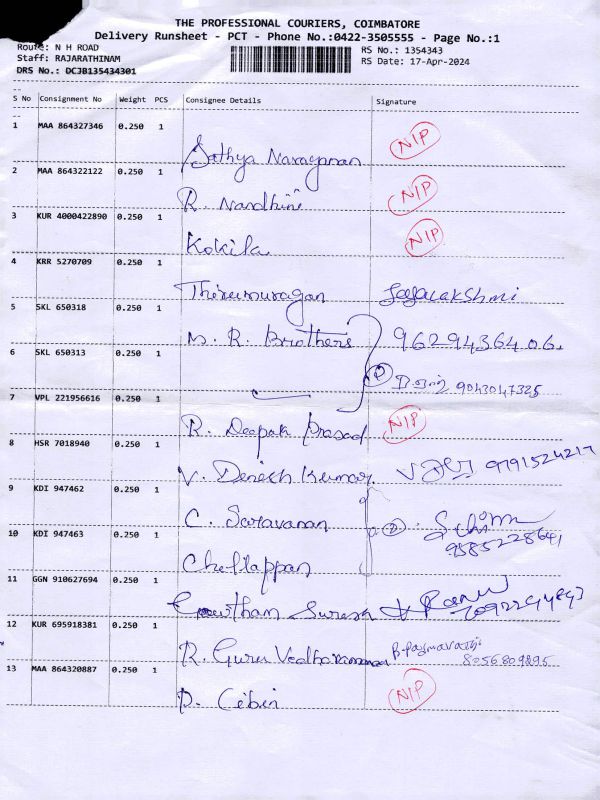 THE PROFESSIONAL COURIERS, COIMBATORE
Delivery Runsheet - PCT - Phone No.:0422-3505555 - Page No.:1
Route: N H ROAD RS No.: 1354343
Staff: RAJARATHINAM RS Date: 17-Apr-2024
DRS No.: DCJB135434301
S No Consignment No Weight PCS Consignee Details Signature
1 MAA 864327346 0.250 1 Sathya Narayanan NIP
2 MAA 864322122 0.250 1 R. Nandhini NIP
3 KUR 4000422890 0.250 1 Kokila NIP
4 KRR 5270709 0.250 1 Thirumuragan Jayalakshmi
5 SKL 650318 0.250 1 M. R. Brothers 9629436406.
6 SKL 650313 0.250 1 2 9043047325
7 VPL 221956616 0.250 1 R. Deepak Prasad NIP
8 HSR 7018940 0.250 1 V. Dinesh Kumar 9791524217
9 KDI 947462 0.250 1 C. Saravanan
10 KDI 947463 0.250 1 Chellappan 2 9585228641
11 GGN 910627694 0.250 1 Gowtham Suresh
12 KUR 695918381 0.250 1 R. Guru Vedharaman B. Padmavathi
8056809895
13 MAA 864320887 0.250 1 P. Cibin NIP